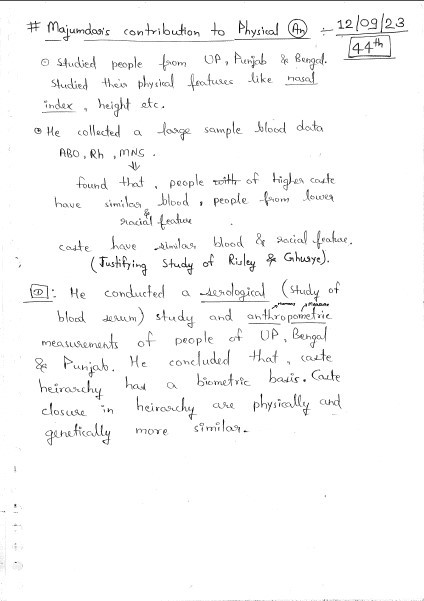 # Majumdar's contribution to Physical (An) :- 12/09/23
44th
⊙ Studied people from UP, Punjab & Bengal.
Studied their physical features like nasal
index, height etc.
⊙ He collected a large sample blood data
ABO, Rh, MNS.
⇓
found that, people with of higher caste
have similar blood, people from lower
& racial feature
caste have similar blood & racial feature.
(Justifying Study of Risley & Ghurye).
D: He conducted a serological (study of
blood serum) study and anthropometric
measurements of people of UP, Bengal
& Punjab. He concluded that, caste
heirarchy has a biometric basis. Caste
closure in heirarchy are physically and
genetically more similar.